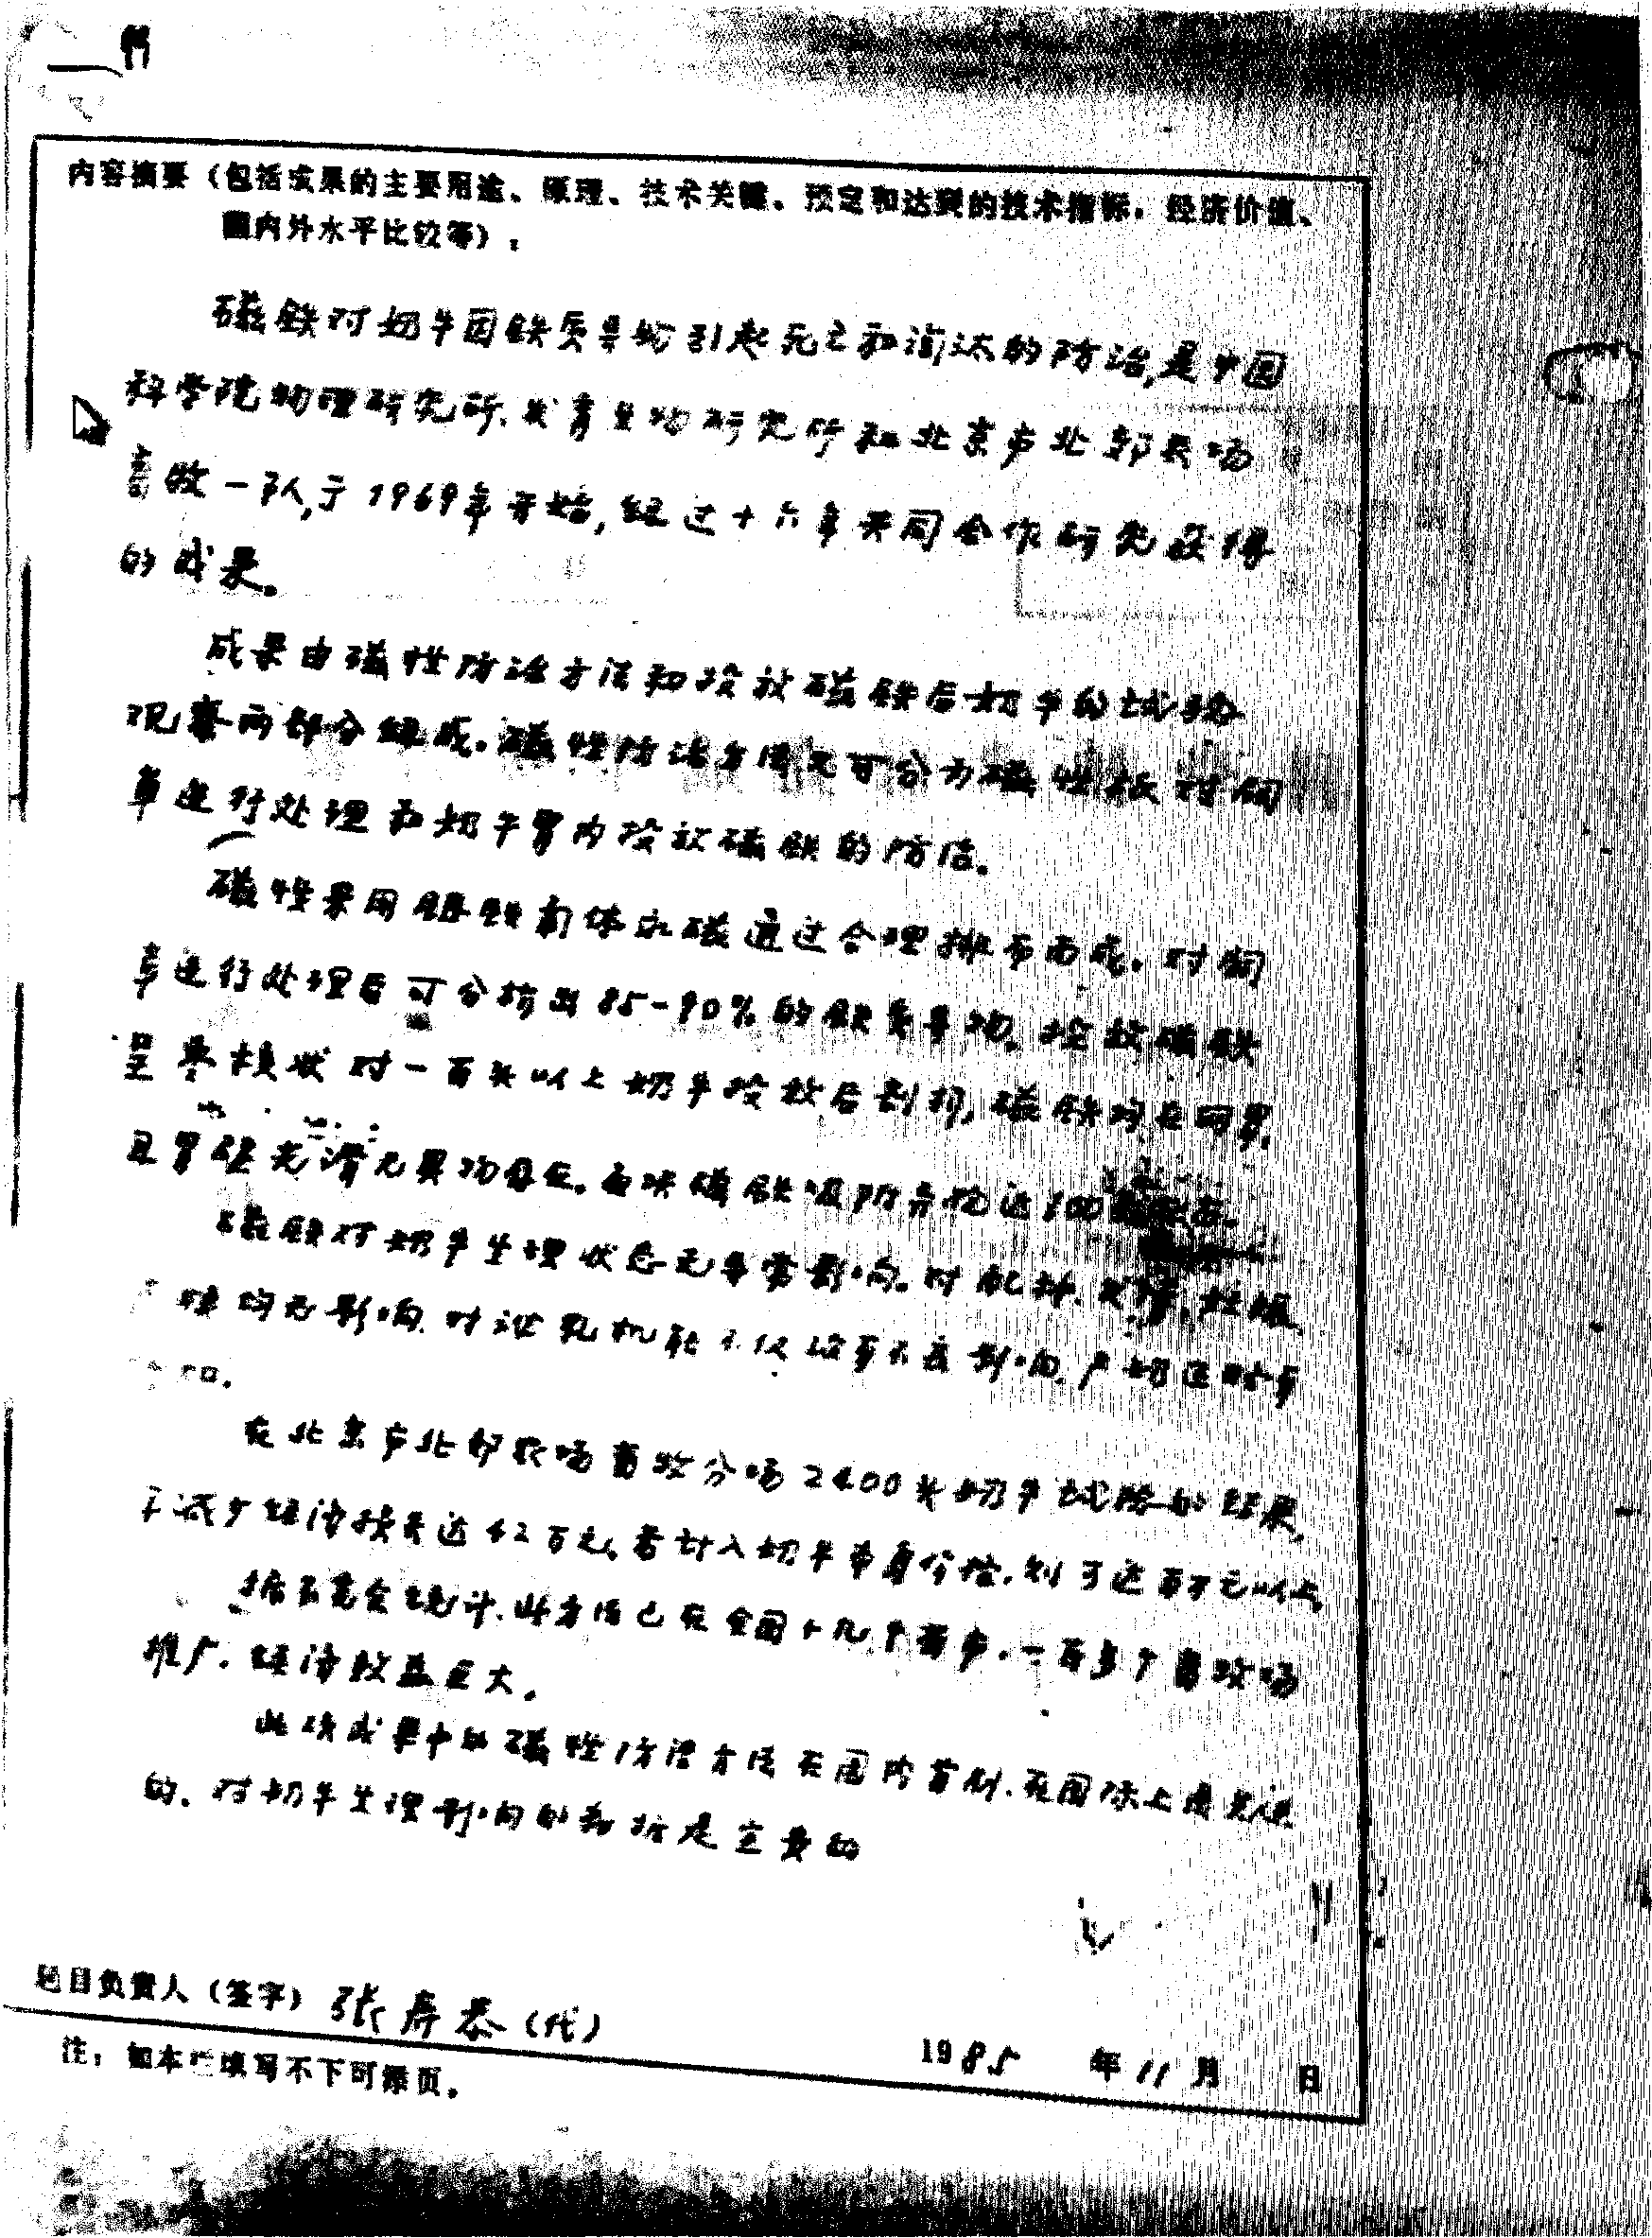 内容摘要（包括成果的主要用途、原理、技术关键、预定和达到的技术指标，经济价值、
国内外水平比较等）：
磁铁对奶牛因铁质异物引起死亡和淘汰的防治,是中国
科学院物理研究所、发育生物研究所和北京市北郊农场
畜牧一队,于1969年开始,经过十六年共同合作研究获得
的成果。
成果由磁性防治方法和投放磁铁后奶牛的试验
观察两部分组成。磁性防治方法又可分为磁性板对饲
草进行处理和奶牛胃内投放磁铁的防治。
磁性 采用 铁氧体永磁通过合理排布而成。对饲
草进行处理后可分离出85-90%的铁质异物。投放磁铁
呈 状 对一百头以上奶牛投放后剖析,磁铁均在网胃,
且胃壁光滑无异物存在。每块磁铁吸附异物达100
磁铁对奶牛生理状态无异常影响。对配种、发情、妊娠、
均无影响。对泌乳机能不仅没有不良影响,产奶
在北京市北郊农场畜牧分场2400头奶牛试验的结果,
减少经济损失达42万元。若计入奶牛本身价格,则可达百万元以上。
据不完全统计,此方法已在全国十几个省市,一百多个畜牧场
推广,经济效益巨大。
此项成果中的磁性防治方法在国内首创,在国际上是先进
的。对奶牛生理影响的分析是主要的
题目负责人（签字）张寿恭(代)
1985 年 11 月 日
注：如本栏填写不下可添页。